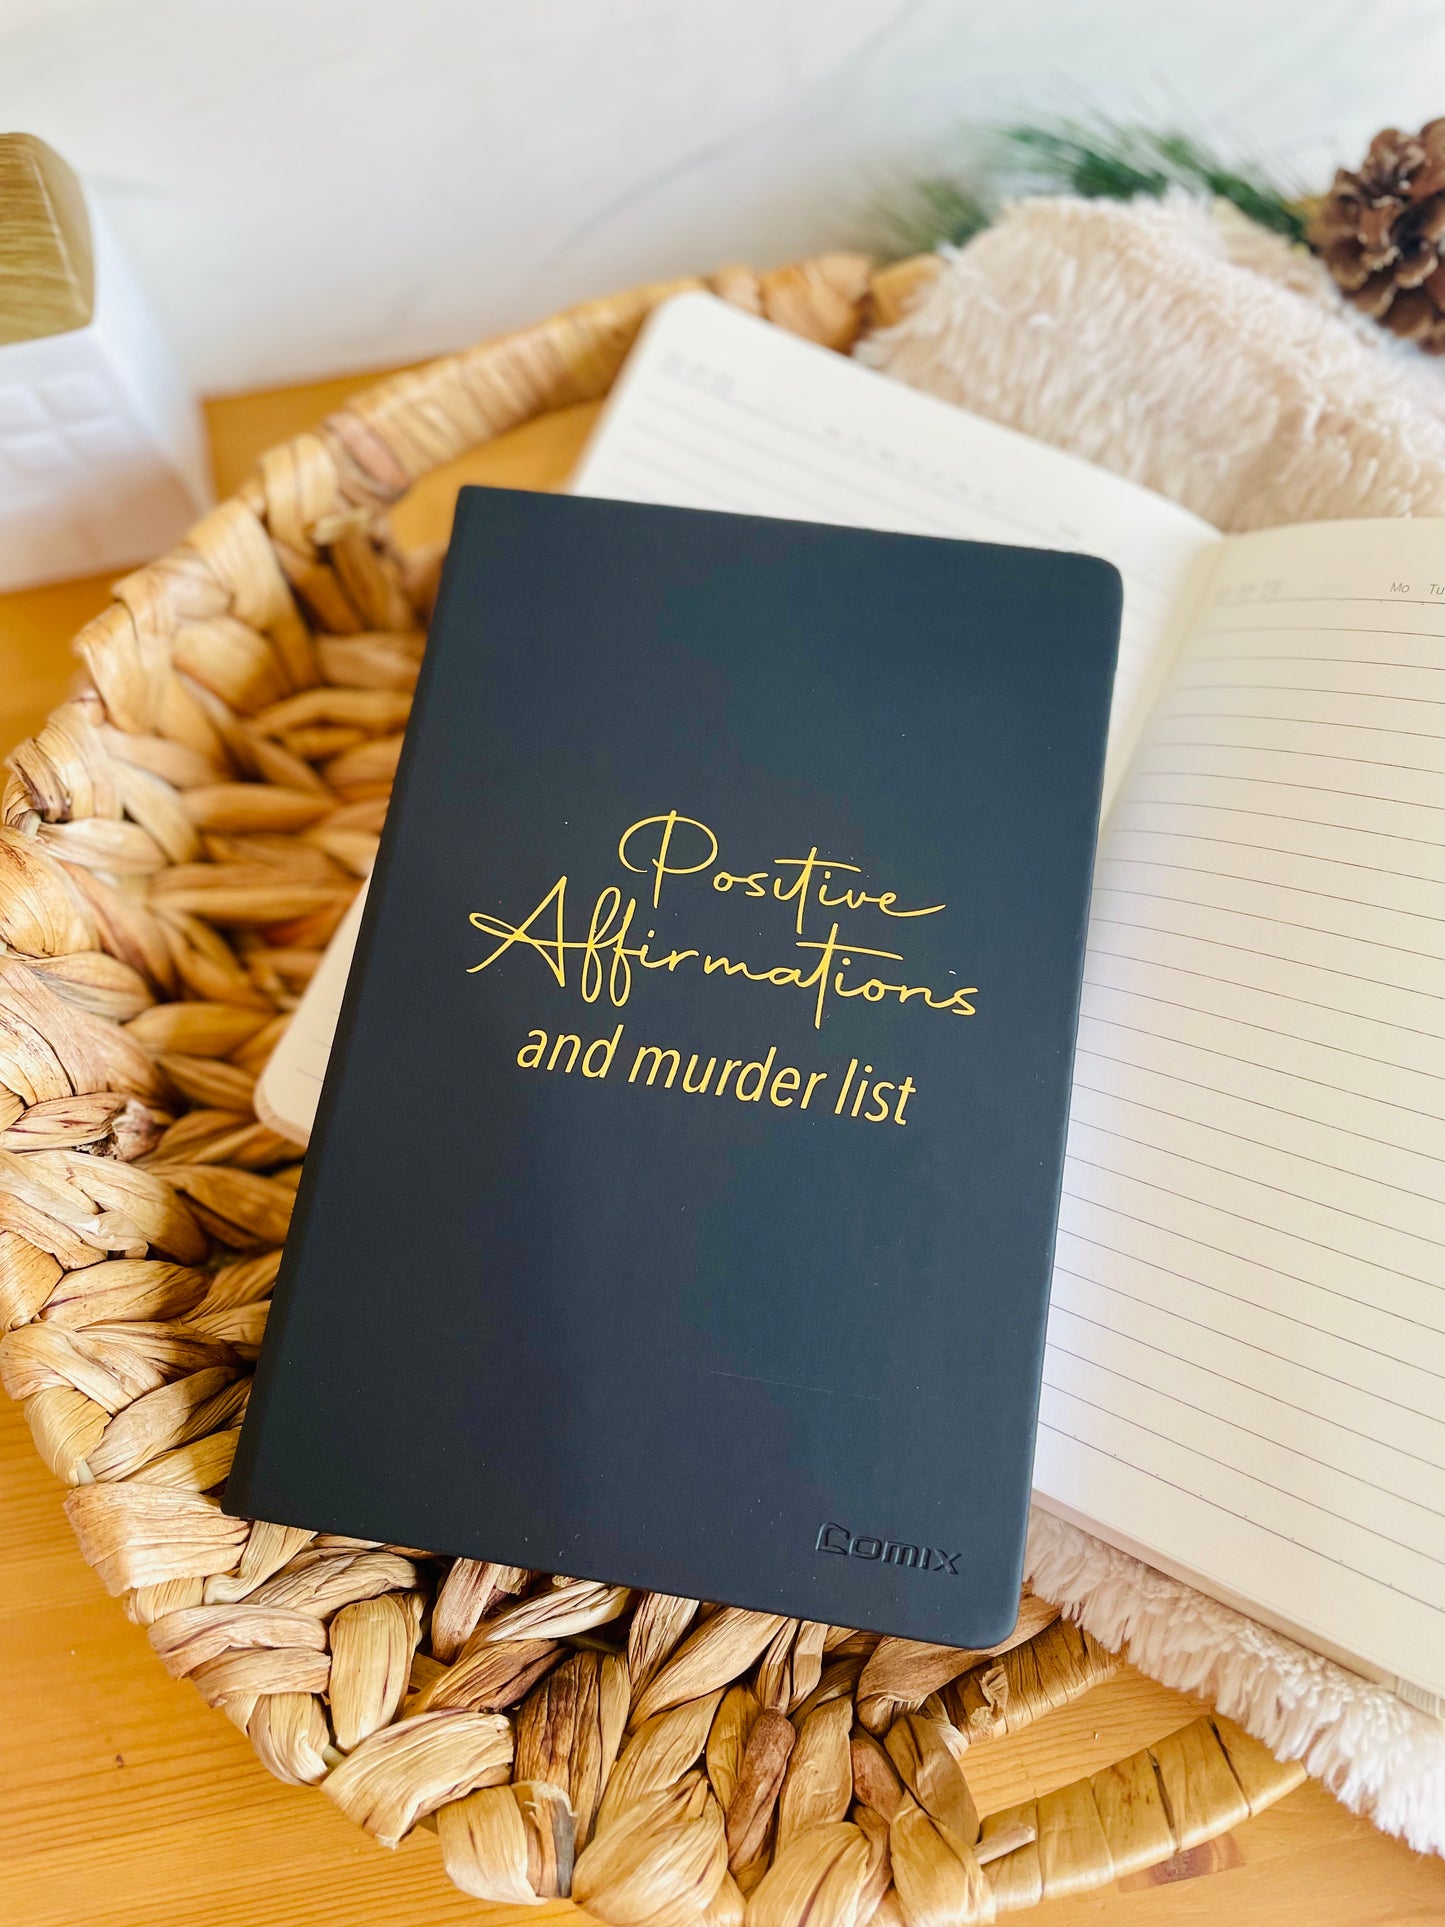 Positive
Affirmations
and murder list
Comix
Mo Tu